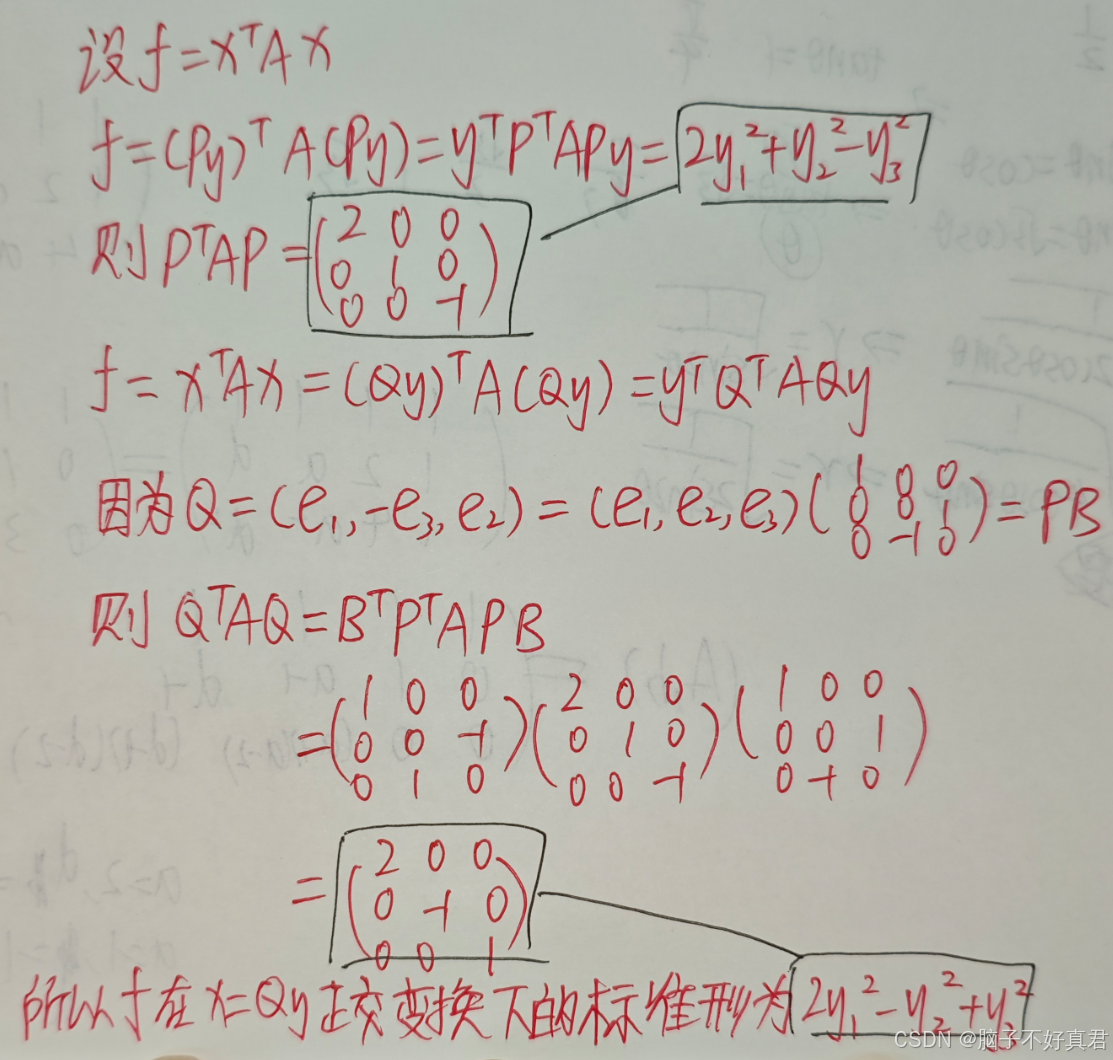 设f=xᵀAx
f=(Py)ᵀA(Py)=yᵀPᵀAPy=2y₁²+y₂²-y₃²
则PᵀAP=(2 0 0
0 1 0
0 0 -1)
f=xᵀAx=(Qy)ᵀA(Qy)=yᵀQᵀAQy
因为Q=(e₁,-e₃,e₂)=(e₁,e₂,e₃)(1 0 0
0 0 1
0 -1 0)=PB
则 QᵀAQ=BᵀPᵀAPB
=(1 0 0
0 0 -1
0 1 0)(2 0 0
0 1 0
0 0 -1)(1 0 0
0 0 1
0 -1 0)
=(2 0 0
0 -1 0
0 0 1)
所以f在x=Qy正交变换下的标准形为2y₁²-y₂²+y₃²
CSDN @脑子不好真君